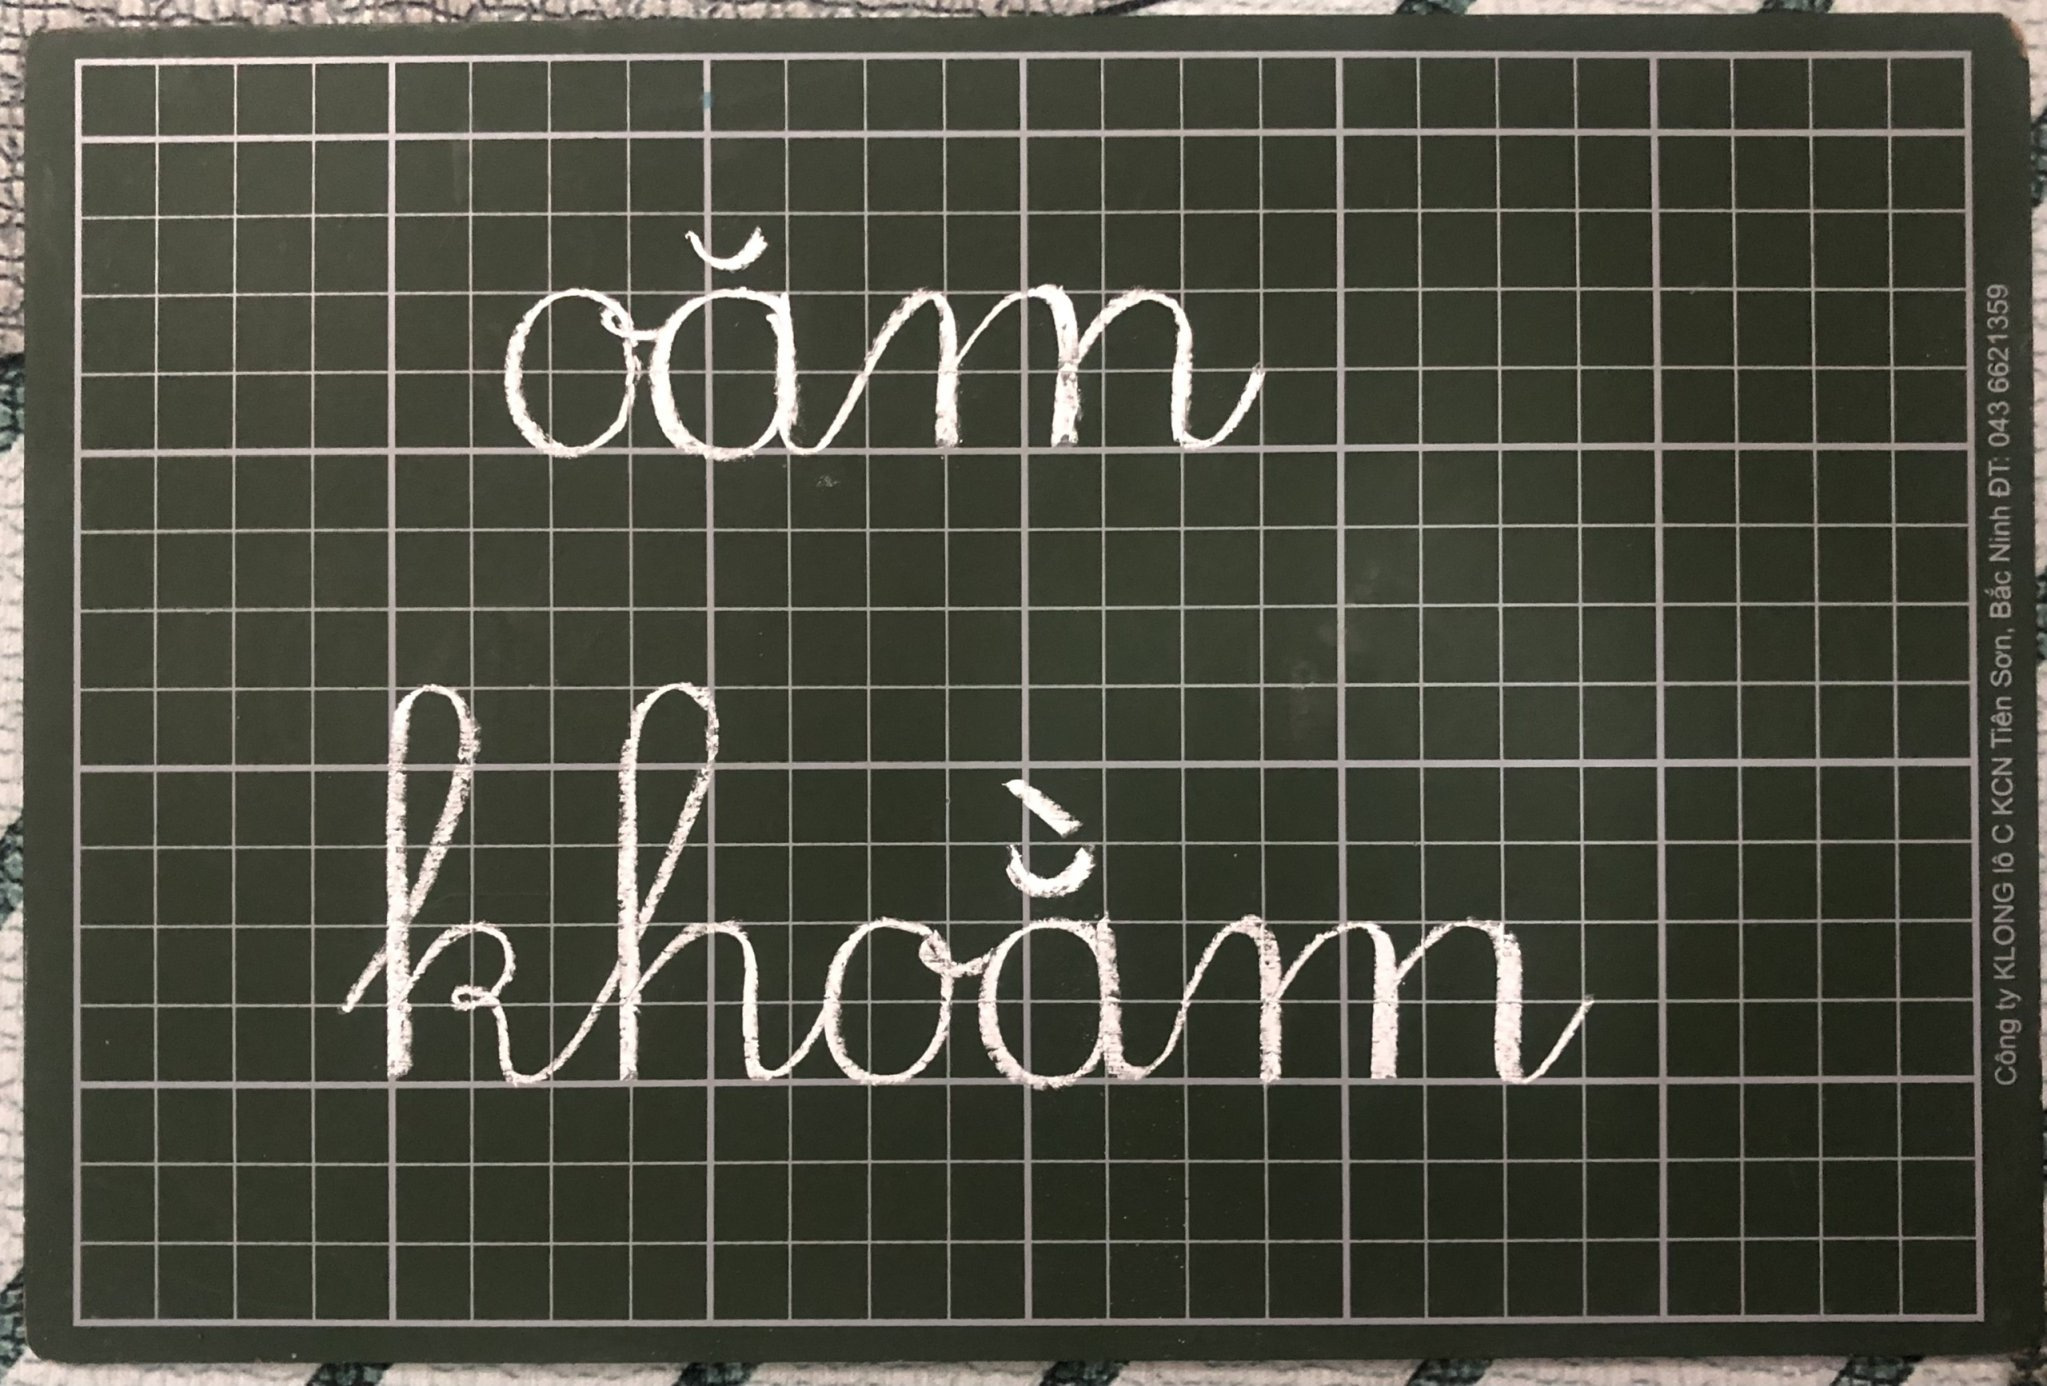 oăm
khoằm
Công ty KLONG lô C KCN Tiên Sơn, Bắc Ninh ĐT: 043 6621359